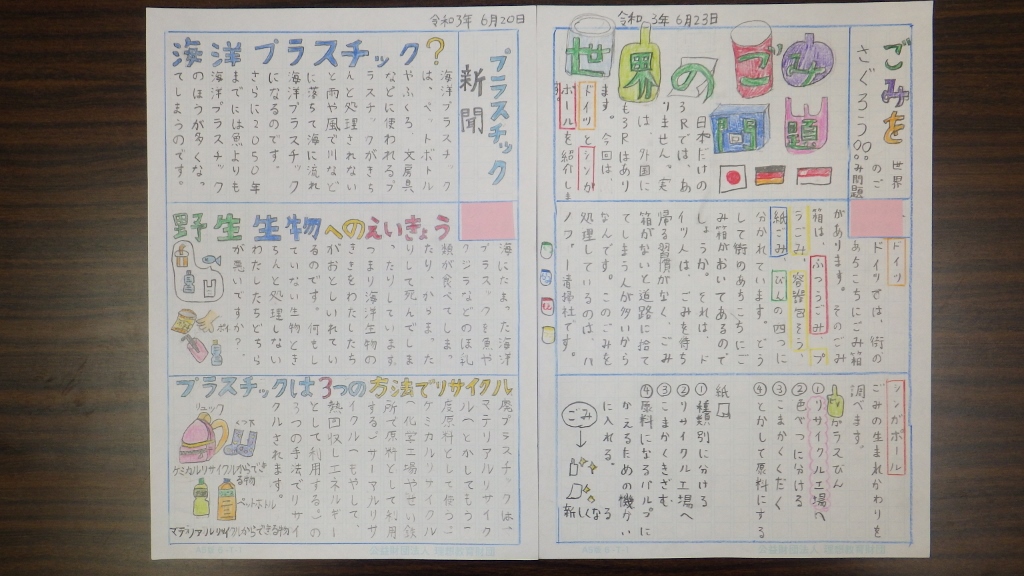 令和3年 6月20日
プラスチック
新聞
海洋プラスチック?
海洋プラスチック
は、ペットボトル
やふくろ、文房具
などに使われるプ
ラスチックがきち
んと処理されない
と雨や風で川など
に落ちて海に流れ
海洋プラスチック
になるのです。
さらに2050年
までには魚よりも
海洋プラスチック
のほうが多くなっ
てしまうのです。
野生生物へのえいきょう
海にたまった海洋
プラスチックを魚や
クジラなどのほ乳
類が食べてしまっ
たり、からまった
りして死んでしま
ったりしています。
つまり海洋生物の
ききをわたしたち
がおとしいれてい
るのです。何もし
ていない生物とき
ちんと処理しない
わたしたちどちら
が悪いですか?
ポイ
プラスチックは3つの方法でリサイクル
廃プラスチックは、
マテリアルリサイク
ル(とかしてもう一
度原料として使う)
ケミカルリサイクル
(化学工場やせい鉄
所で原料として利用
する)サーマルリサ
イクル(もやして、
熱回収しエネルギー
として利用する)の
3つの手法でリサイ
クルされます。
リュック
くつ下
ケミカルリサイクルからでき
る物
ペットボトル
マテリアルリサイクルからできる物
令和3年 6月23日
ごみを
さぐろう
世界
のご
み問題
世界のごみ問題
日本だけの
3Rでは、あ
りません。実
は、外国に
も3Rはあり
ます。今回は、
ドイツとシンガ
ポールを紹介しま
す。
ドイツ
ドイツでは、街の
あちこちにごみ箱
があります。そのごみ
箱は、ふつうごみ、プ
ラごみ、容器包そう、
紙ごみ、びんの四つに
分かれています。どう
して街のあちこちにご
み箱がおいてあるので
しょうか。それは、ド
イツ人は、ごみを持ち
帰る習慣がなく、ごみ
箱がないと道路に捨て
てしまう人が多いから
なんです。このごみを
処理しているのは、ハ
ノファー清掃社です。
シンガポール
ごみの生まれかわりを
調べます。
ガラスびん
①リサイクル工場へ
②色べつに分ける
③こまかくくだく
④とかして原料にする
紙
①種類別に分ける
②リサイクル工場へ
③こまかくきざむ
④原料になるパルプに
かえるための機かい
に入れる。
ごみ
新しくなる